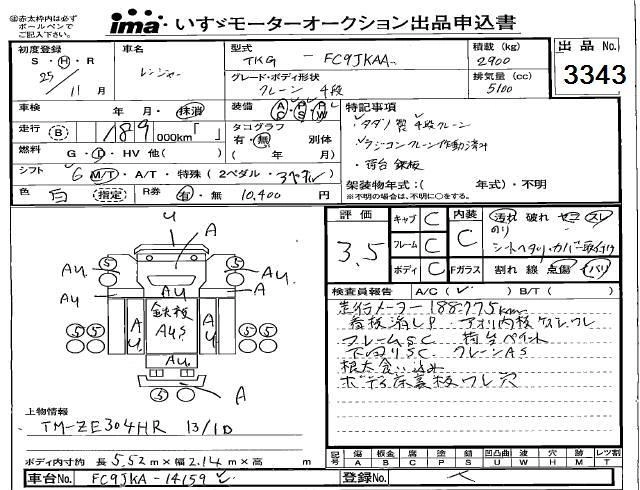 ◎赤太枠内は必ず
ボールペンで
ご記入下さい。
ima・いすゞモーターオークション出品申込書
初度登録
S・H・R
25/11 月
車名
レンジャー
型式
TKG - FC9JKAA
グレード・ボディ形状
クレーン 4段
積載 (kg)
2900
排気量 (cc)
5100
出品No.
3343
車検 年・月・抹消
装備 A C P S P W
走行 B 189 000km「 」
タコグラフ
有・無 別体
( 年 月)
燃料 G・D・HV 他( )
シフト 6 M/T・A/T・特殊(2ペダル・3ペダル)
色 白 (指定) R券 有・無 10,400 円
特記事項
・タダノ製 4段クレーン
・ラジコンクレーン作動済み
・荷台鉄板
架装物年式:( 年式)・不明
※不明の場合は、不明に○をする。
評価
3.5
キャブ C
フレーム C
ボディ C
内装
C
汚れ 破れ セミ スレ
のり
シートヘタリ・カバー取付け
Fガラス 割れ 線 点傷 イバリ
検査員報告 A/C( ) B/T( )
走行メーター188,775km
フレームSC 荷台ペイント
下回りSC クレーンAS
根太食い込み
ボデー床裏板ワレ穴
U
A
S S
AU AU
AU AU A
鉄板
AUS
AU AU
S S S S
AU
A
S
上物情報
TM-ZE304HR 13/1D
ボディ内寸約 長 5.52 m×幅 2.14 m×高 m
記号 傷 板金 腐 塗 錆 凹凸曲 波 穴 跡 レツ割
A B C P S U W H M T
車台No. FC9JKA-14159
登録No.